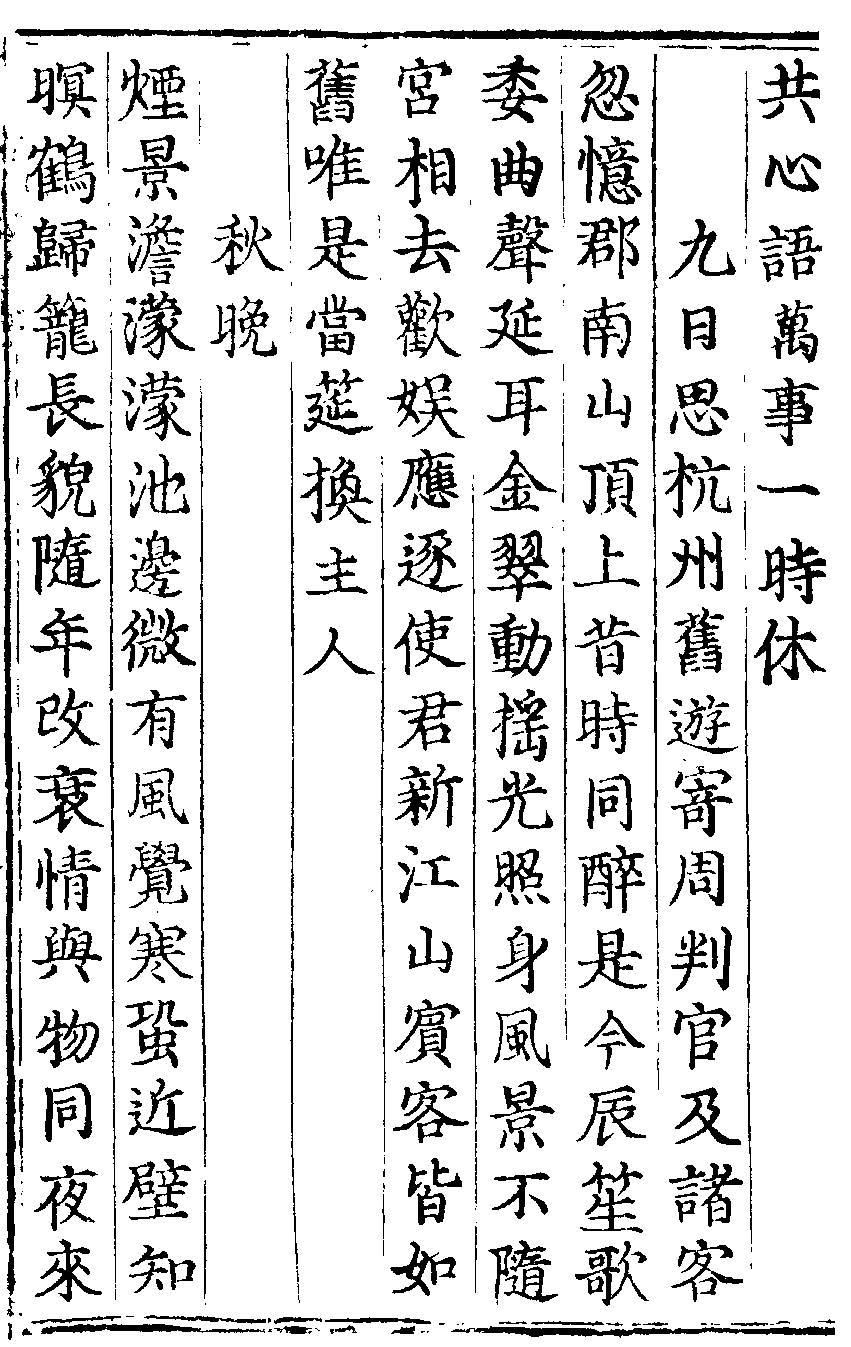 共心語萬事一時休
九日思杭州舊遊寄周判官及諸客
忽憶郡南山頂上昔時同醉是今辰笙歌
委曲聲延耳金翠動搖光照身風景不隨
宮相去歡娛應逐使君新江山賓客皆如
舊唯是當筵換主人
秋晚
煙景澹濛濛池邊微有風覺寒蛩近壁知
暝鶴歸籠長貌隨年改衰情與物同夜來